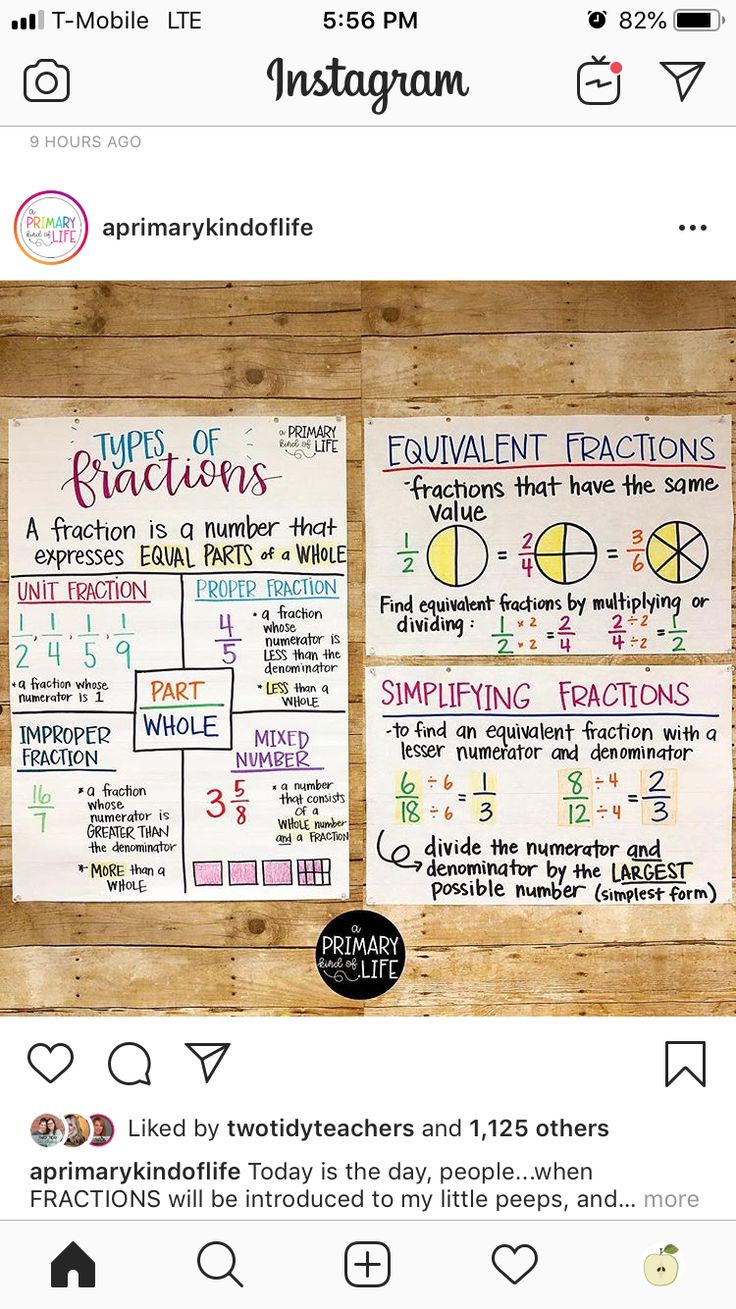 T-Mobile LTE 5:56 PM 82%
Instagram
9 HOURS AGO
a PRIMARY kind of LIFE
aprimarykindoflife
TYPES OF
fractions
a PRIMARY
kind of LIFE
A fraction is a number that
expresses EQUAL PARTS of a WHOLE
UNIT FRACTION
1/2, 1/4, 1/5, 1/9
*a fraction whose
numerator is 1
PROPER FRACTION
4/5
• a fraction
whose
numerator is
LESS than the
denominator
*LESS than a
WHOLE
PART
WHOLE
IMPROPER
FRACTION
16/7
* a fraction
whose
numerator is
GREATER THAN
the denominator
*MORE than a
WHOLE
MIXED
NUMBER
3 5/8
* a number
that consists
of a
WHOLE number
and a FRACTION
EQUIVALENT FRACTIONS
-fractions that have the same
value
1/2 = 2/4 = 3/6
Find equivalent fractions by multiplying or
dividing: 1/2 ×2/×2 = 2/4 2/4 ÷2/÷2 = 1/2
SIMPLIFYING FRACTIONS
-to find an equivalent fraction with a
lesser numerator and denominator
6/18 ÷6/÷6 = 1/3 8/12 ÷4/÷4 = 2/3
divide the numerator and
denominator by the LARGEST
possible number (simplest form)
a
PRIMARY
kind of LIFE
Liked by twotidyteachers and 1,125 others
aprimarykindoflife Today is the day, people...when
FRACTIONS will be introduced to my little peeps, and... more